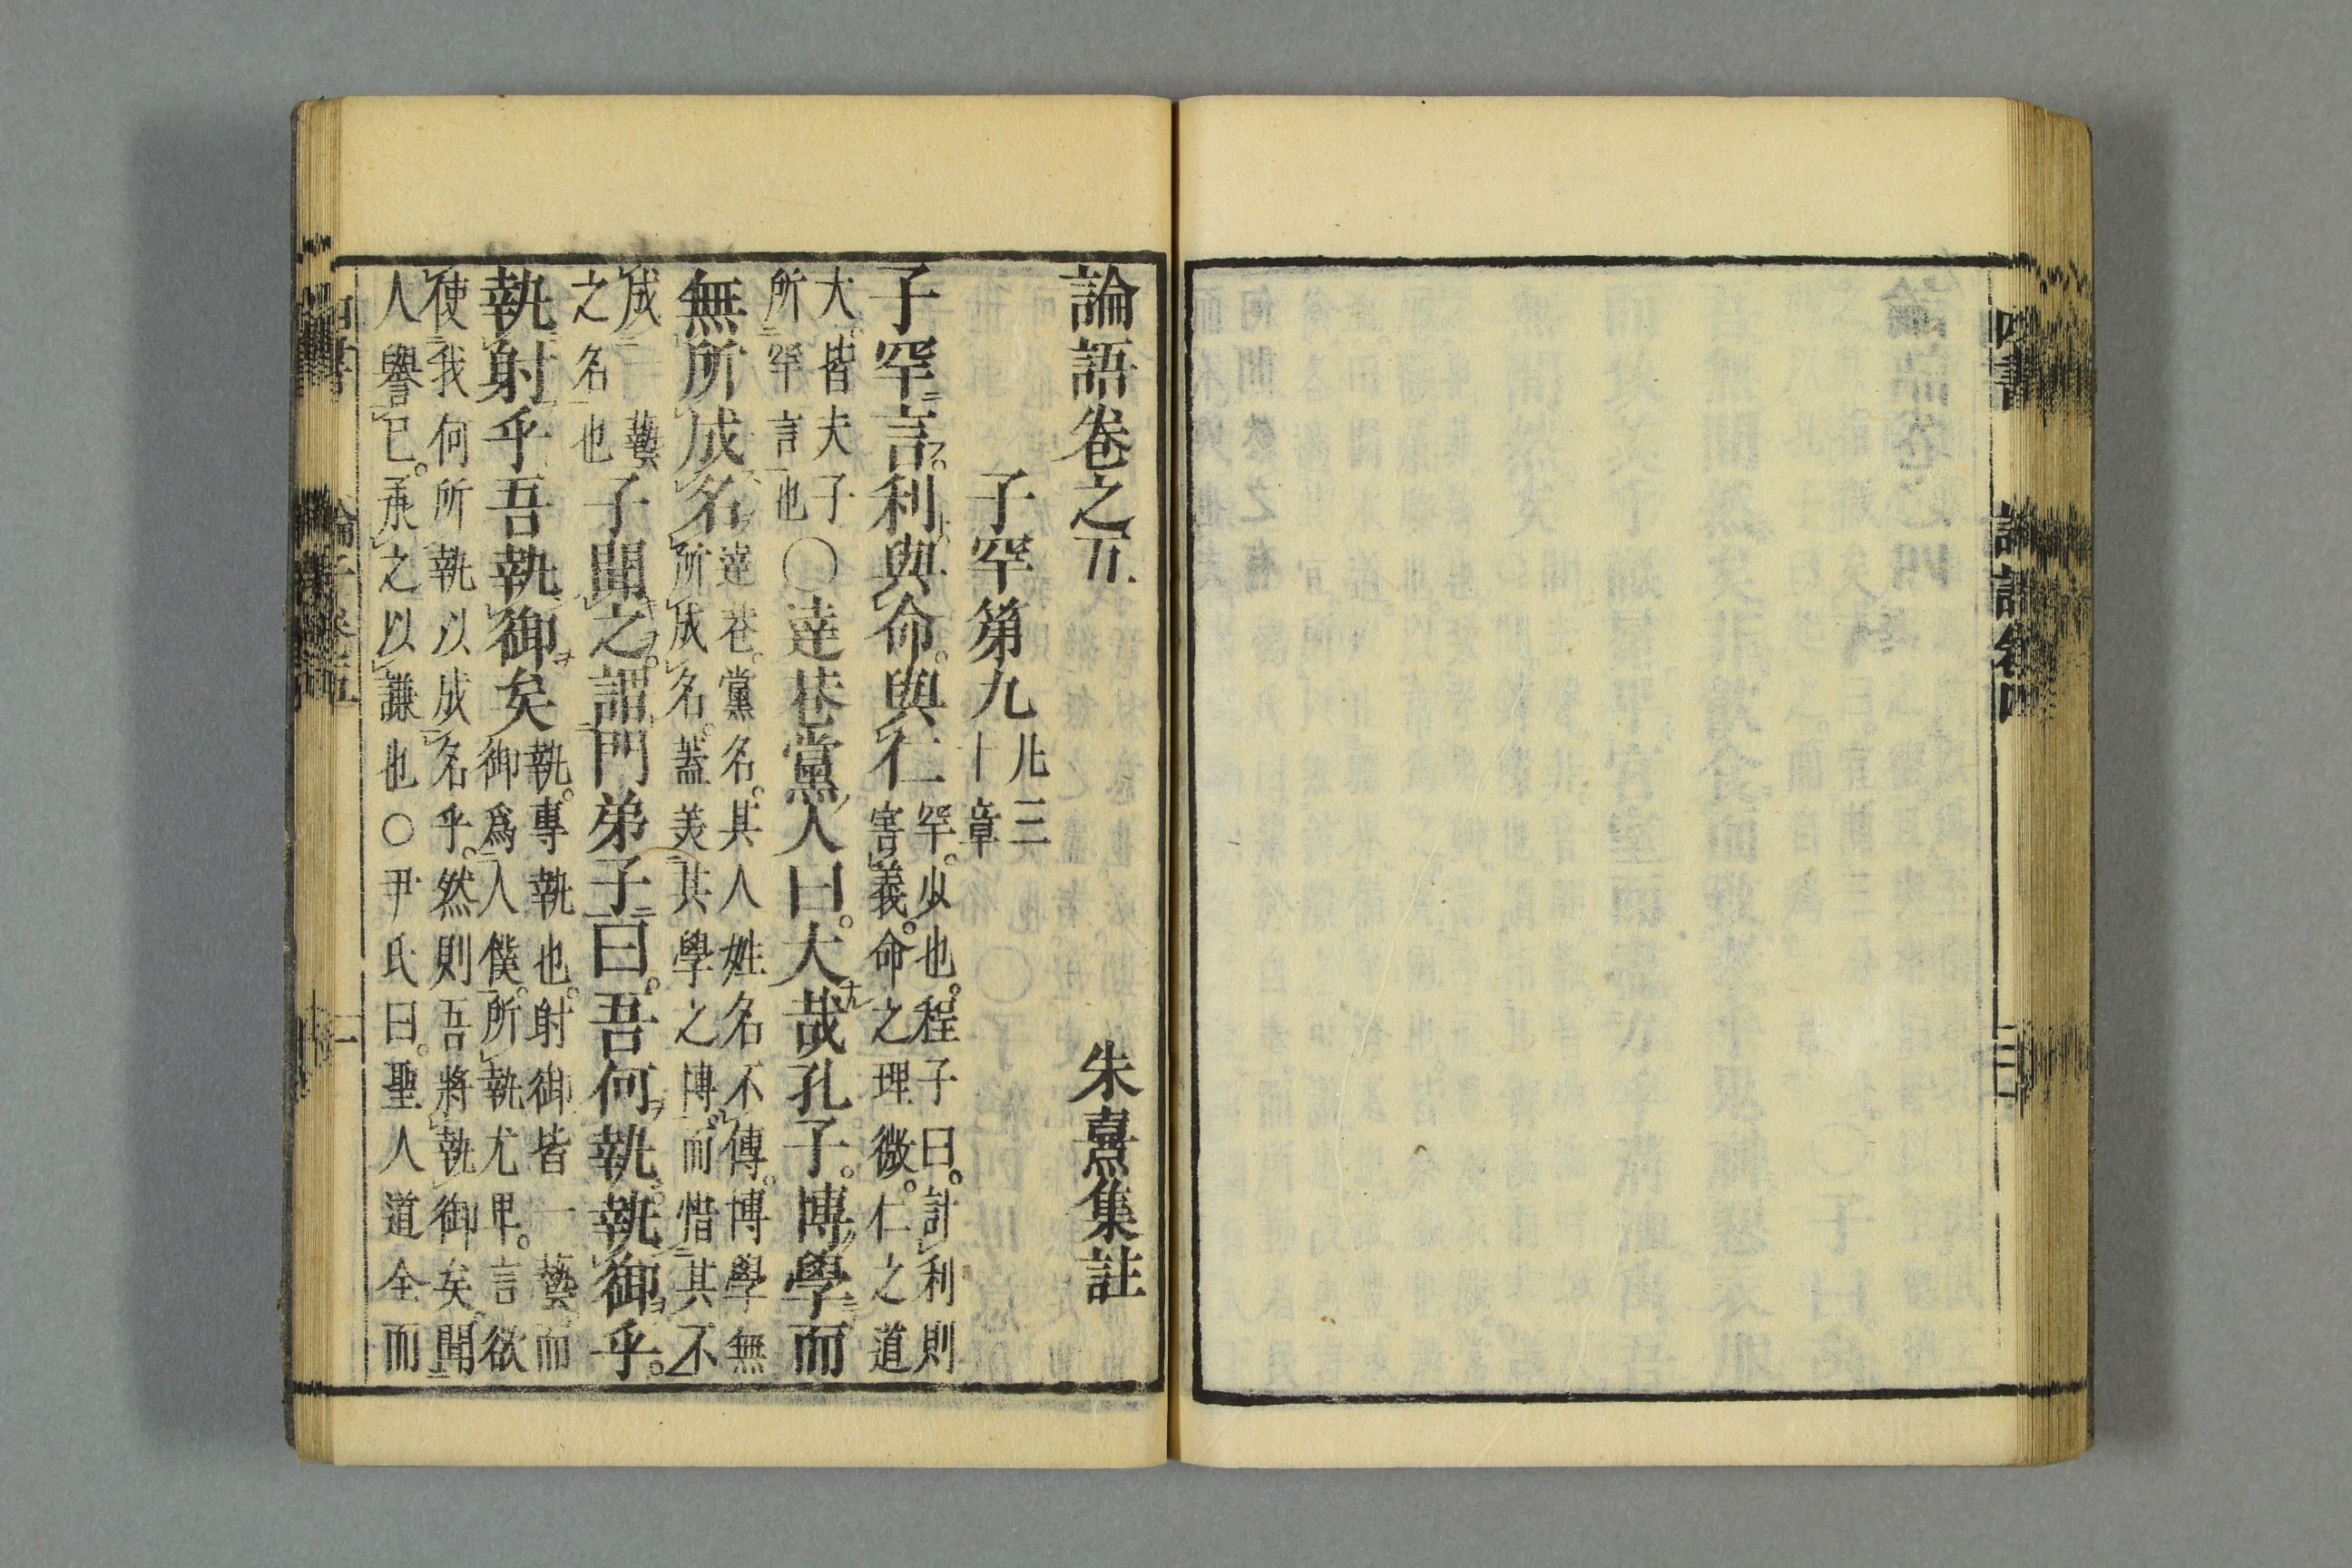 論語卷之五　朱熹集註
子罕第九凡三十章
子罕言利與命與仁罕少也程子曰計利則害義命之理微仁之道
大皆夫子所罕言也〇達巷黨人曰大哉孔子博學而
無所成名達巷黨名其人姓名不傳博學無所成名蓋美其學之博而惜其不
成一藝之名也子聞之謂門弟子曰吾何執執御乎
執射乎吾執御矣執專執也射御皆一藝而御爲人僕所執尤卑言欲
使我何所執以成名乎然則吾將執御矣聞
人譽已承之以謙也〇尹氏曰聖人道全而